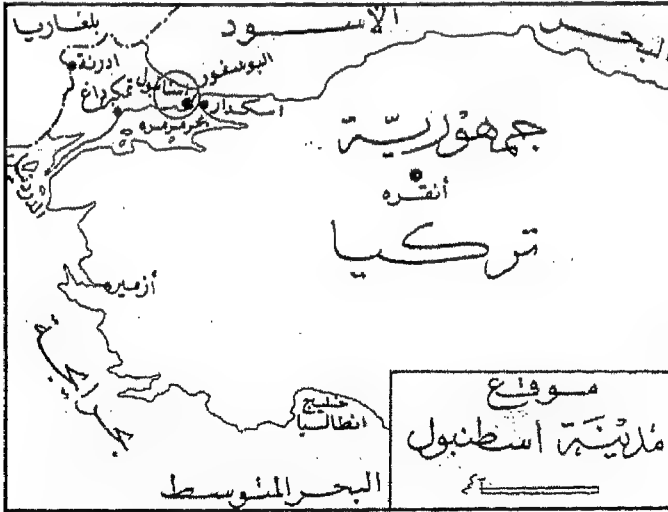 البحر الأسود
بلغاريا
ادرنة
البوسفور
استانبول
تمكيرداغ
اسكدار
بحر مرمره
جمهوريّة
أنقره
تركيا
أزمير
خليج
انطاليا
البحر المتوسط
موقع
مدينة اسطنبول